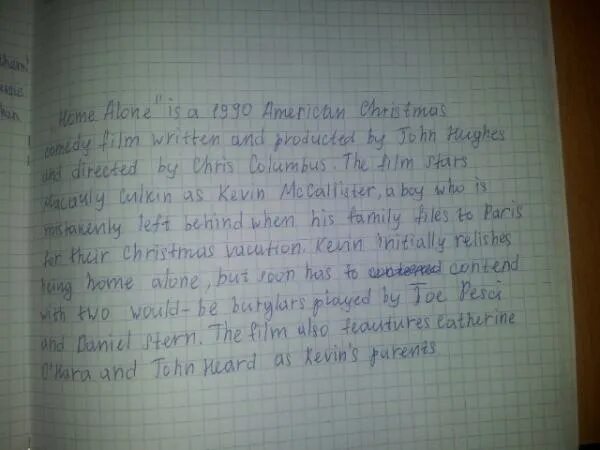 Home Alone" is a 1990 American Christmas
comedy film written and producted by John Hughes
and directed by Chris Columbus. The film stars
Macauly Culkin as Kevin McCallister, a boy who is
mistakenly left behind when his family files to Paris
for their Christmas vacution. Kevin initially relishes
being home alone, but soon has to contend
with two would-be burglars played by Joe Pesci
and Daniel Stern. The film also feautures Catherine
O'Hara and John Heard as Kevin's parents